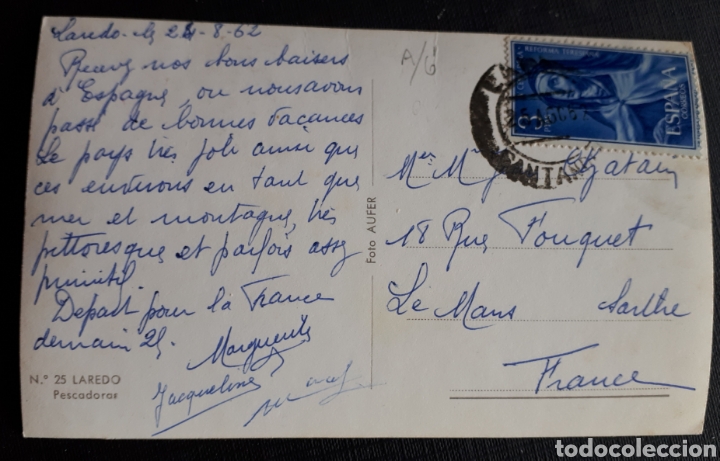 Laredo le 24-8-62
Recevez nos bons baisers
d'Espagne, ou nousavon
passé de bonnes vacances
Le pays très joli ainsi que
ces environs en tant que
mer et montagne, très
pittoresque et parfois assez
primitif.
Depart pour la France
demain 25.
Marguerite
Jacqueline
Nº 25 LAREDO
Pescadoras
Foto AUFER
A/6
ESPAÑA
CORREOS
SANTANDER
18 Rue Fouquet
Le Mans Sarthe
France
todocoleccion
todocoleccion.net